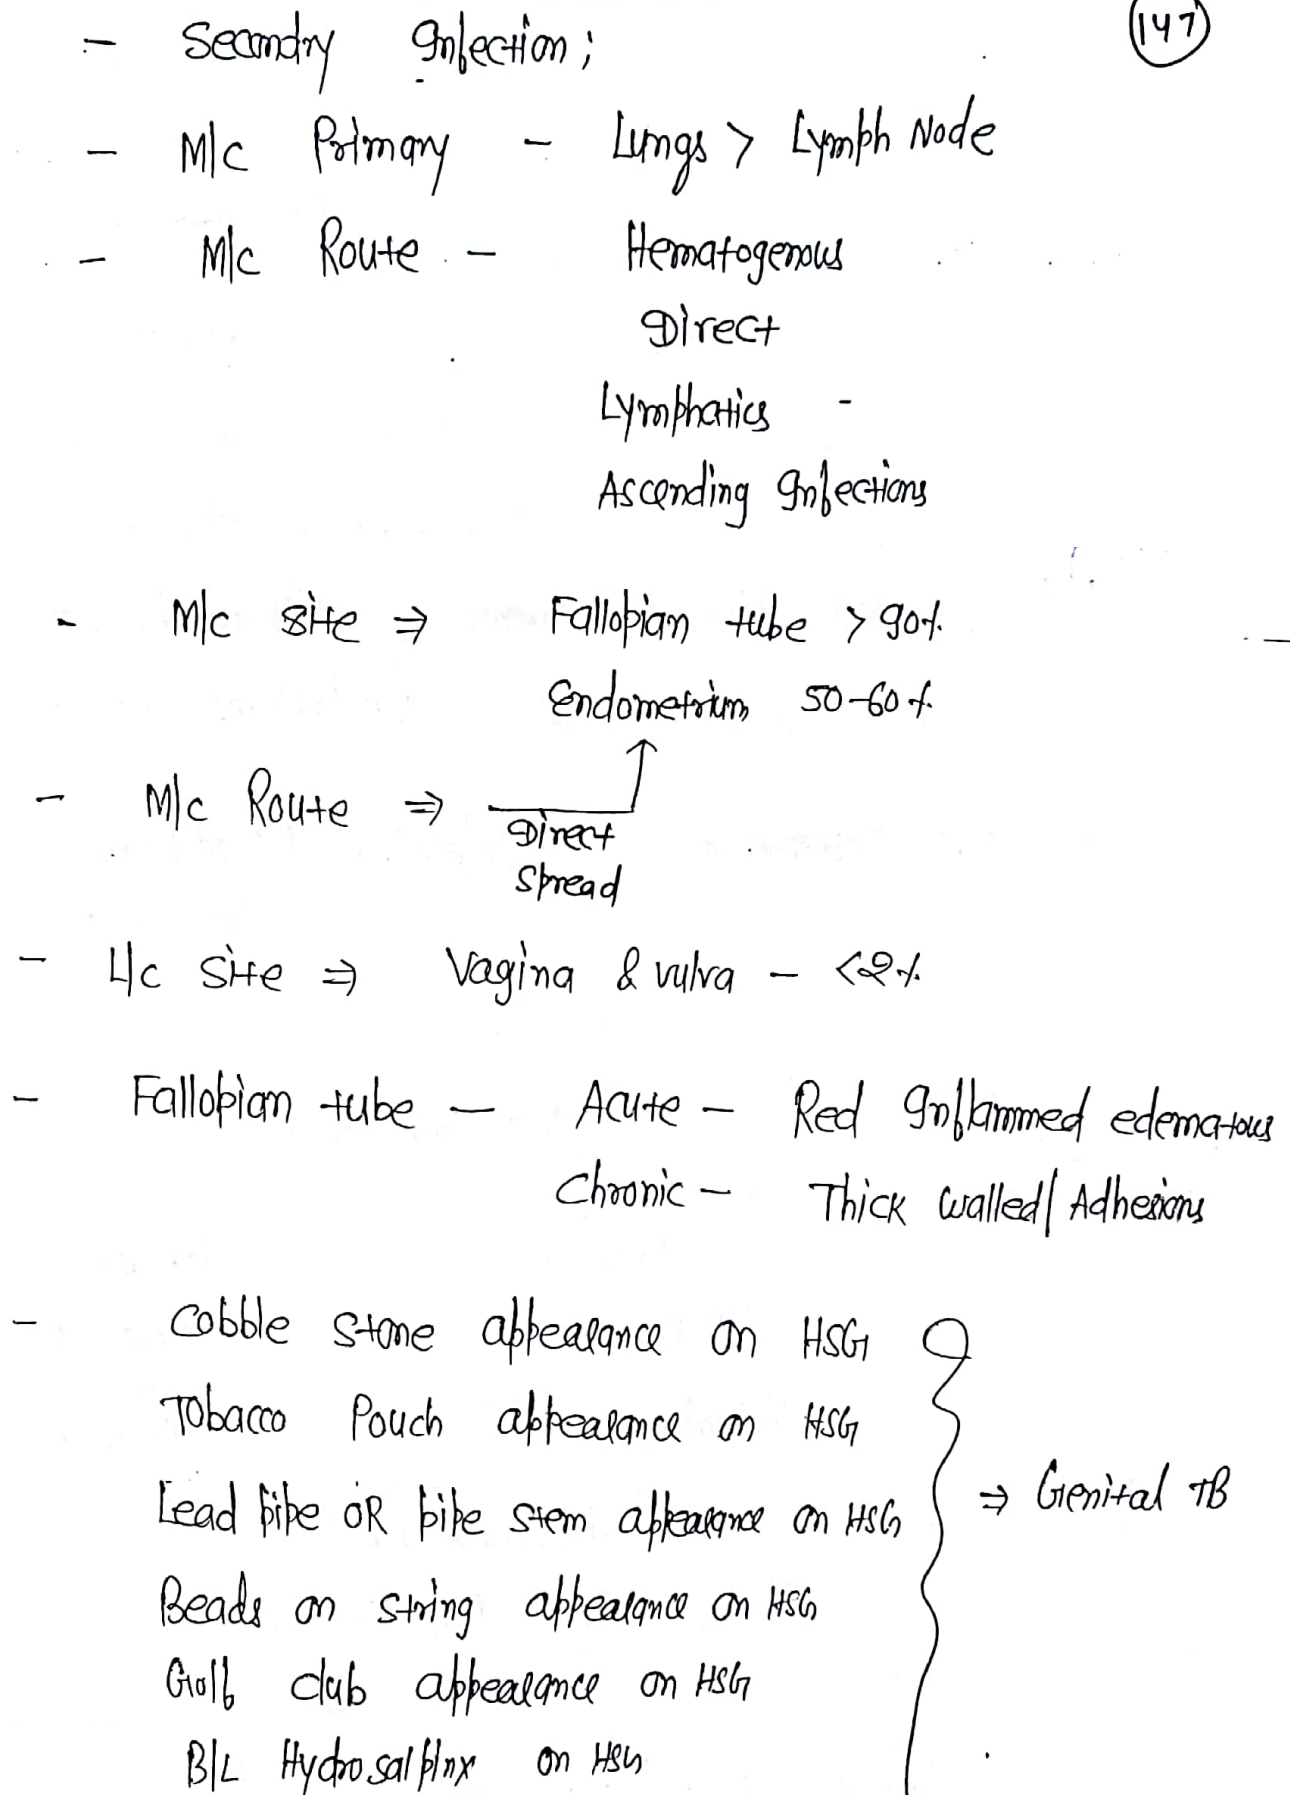 147
- Secondry Infection;
- M/c Primary - Lungs > Lymph Node
- M/c Route - Hematogenous
Direct
Lymphatics -
Ascending Infections
- M/c site ⇒ Fallopian tube > 90%
Endometrium 50-60%
- M/c Route ⇒ Direct
Spread
- L/c Site ⇒ Vagina & vulva - <2%
- Fallopian tube - Acute - Red Inflammed edematous
Chronic - Thick walled/ Adhesions
- Cobble stone appearance on HSG
Tobacco Pouch appearance on HSG
Lead pipe OR pipe stem appearance on HSG ⇒ Genital TB
Beads on string appearance on HSG
Golf club appearance on HSG
B/L Hydrosalpinx on HSG